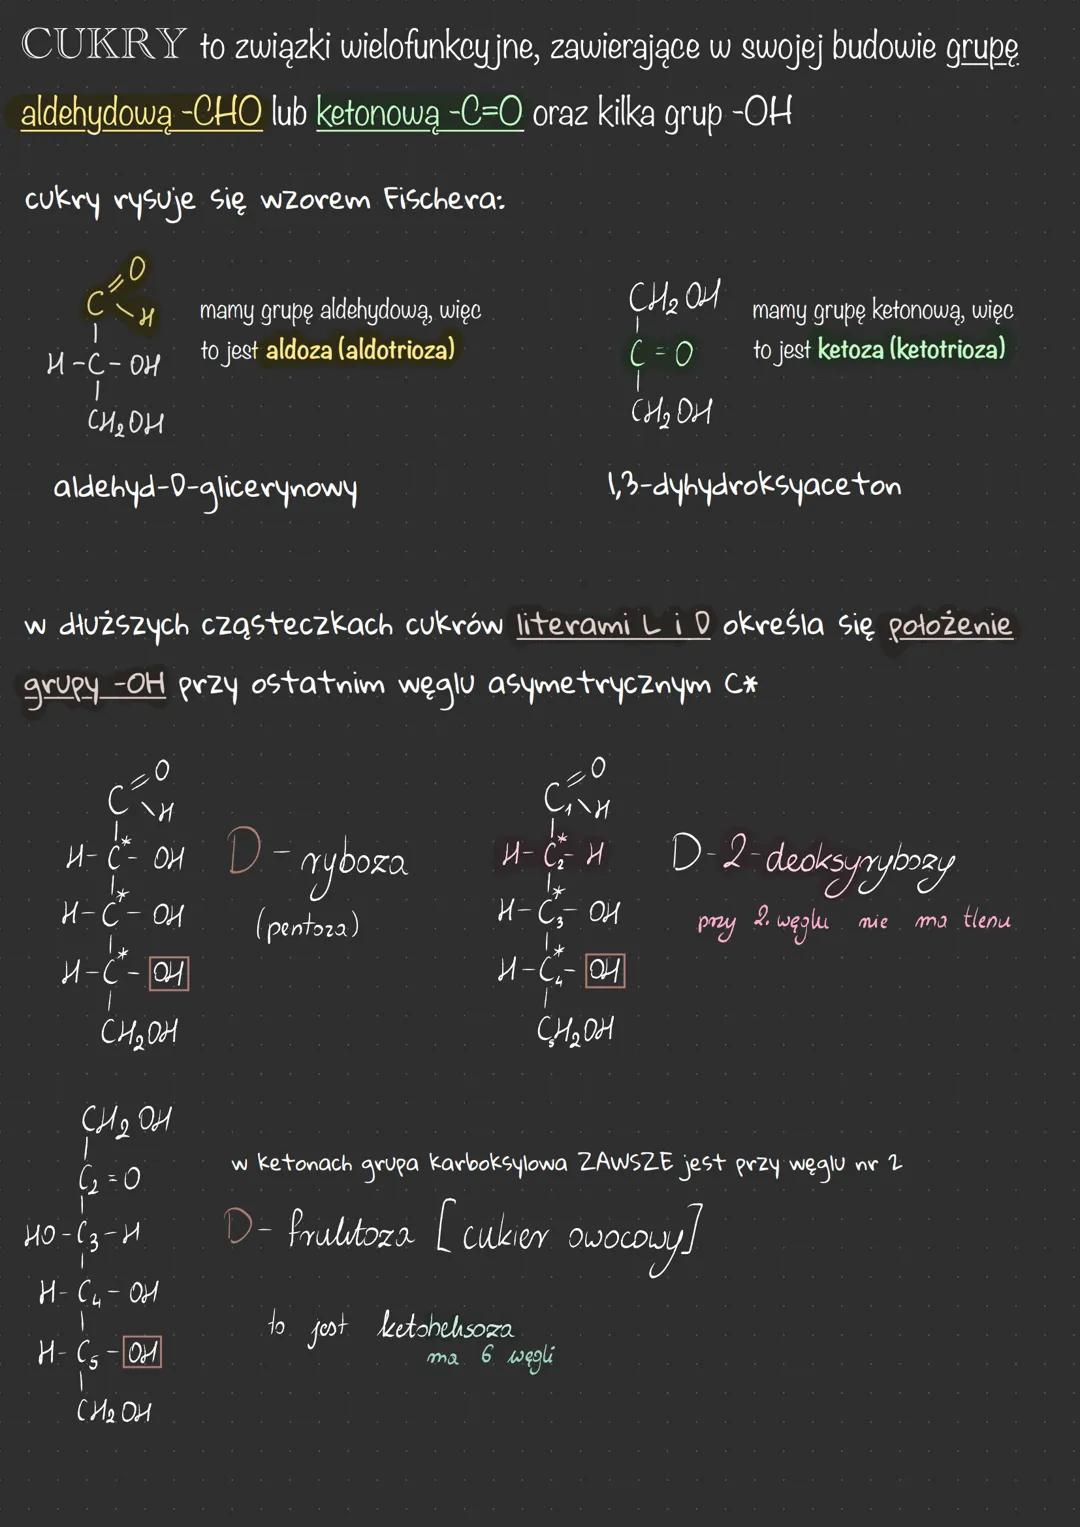 CUKRY to związki wielofunkcyjne, zawierające w swojej budowie grupę
aldehydową -CHO lub ketonową -C=O oraz kilka grup -OH
cukry rysuje się wzorem Fischera:
C=O
H
H-C-OH
CH₂OH
mamy grupę aldehydową, więc
to jest aldoza (aldotrioza)
aldehyd-D-glicerynowy
CH₂OH
C=O
CH₂OH
mamy grupę ketonową, więc
to jest ketoza (ketotrioza)
1,3-dyhydroksyaceton
w dłuższych cząsteczkach cukrów literami L i D określa się położenie
grupy -OH przy ostatnim węglu asymetrycznym C*
C=O
H
H-C*-OH
H-C*-OH
H-C*-OH
CH₂OH
D-ryboza
(pentoza)
C₁=O
H
H-C₂*-H
H-C₃*-OH
H-C₄*-OH
C₅H₂OH
D-2-deoksyrybozy
przy 2. węglu nie ma tlenu
CH₂OH
C₂=O
HO-C₃-H
H-C₄-OH
H-C₅-OH
CH₂OH
w ketonach grupa karboksylowa ZAWSZE jest przy węglu nr 2
D-fruktoza [cukier owocowy]
to jest ketoheksoza
ma 6 węgli